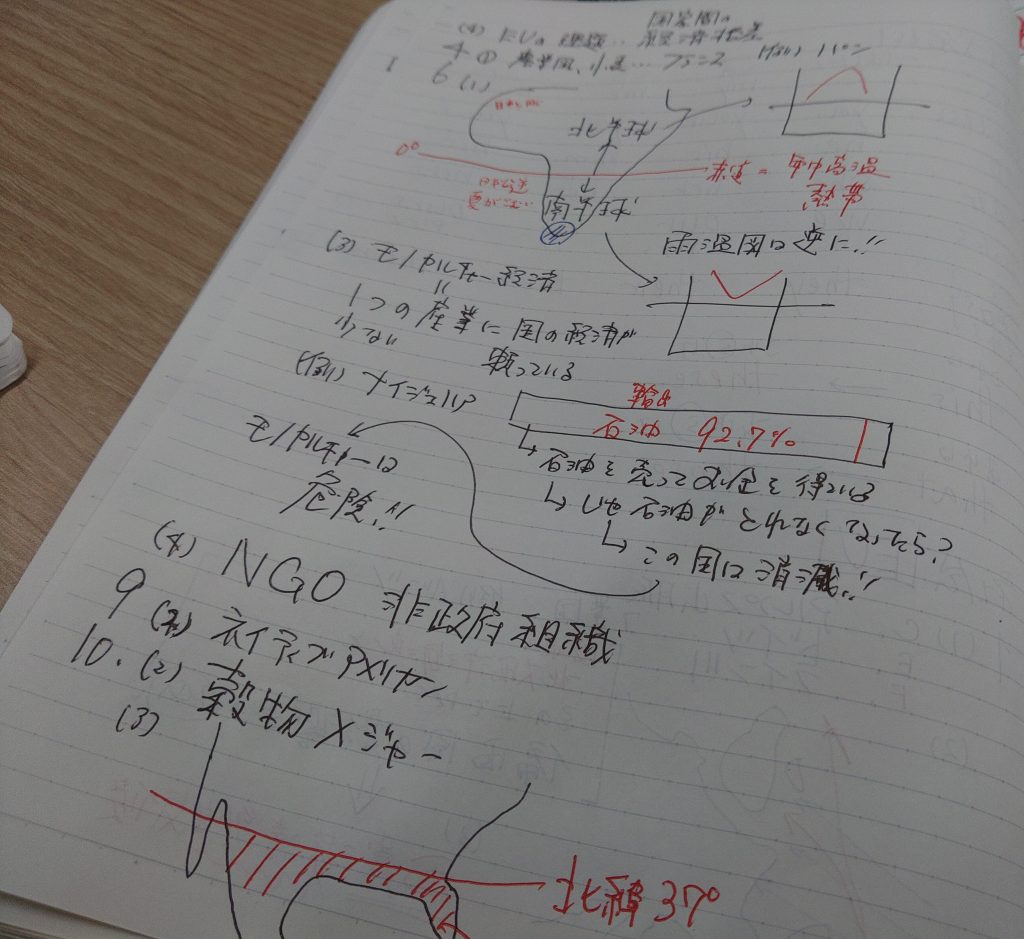 国家間の
(4) EUの課題… 経済格差
4 ① 農業国、小麦… フランス
(例) パン
I 6 (1)
北半球
0° 赤道 = 年中高温
熱帯
南半球
雨温図は逆に!!
(3) モノカルチャー経済
〃
1つの産業に国の経済が
少ない 頼っている
(例) ナイジェリア
輸出
石油 92.7%
↳ 石油を売ってお金を得ている
↳ じゃ石油がとれなくなったら?
↳ この国は消滅!!
モノカルチャーは
危険!!
(4) NGO 非政府組織
9 ネイティブアメリカン
10. (2) 穀物メジャー
(3)
北緯37°